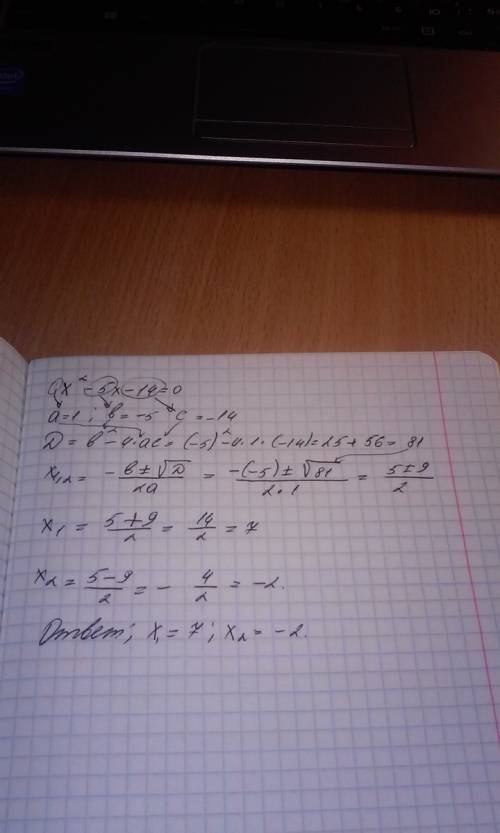 x² - 5x - 14 = 0
a = 1 ; b = -5 c = -14
D = b² - 4·ac = (-5)² - 4·1·(-14) = 25 + 56 = 81
x₁,₂ = -b ± √D / 2a = -(-5) ± √81 / 2·1 = 5 ± 9 / 2
x₁ = 5 + 9 / 2 = 14 / 2 = 7
x₂ = 5 - 9 / 2 = - 4 / 2 = -2.
Ответ; x₁ = 7 ; x₂ = -2.